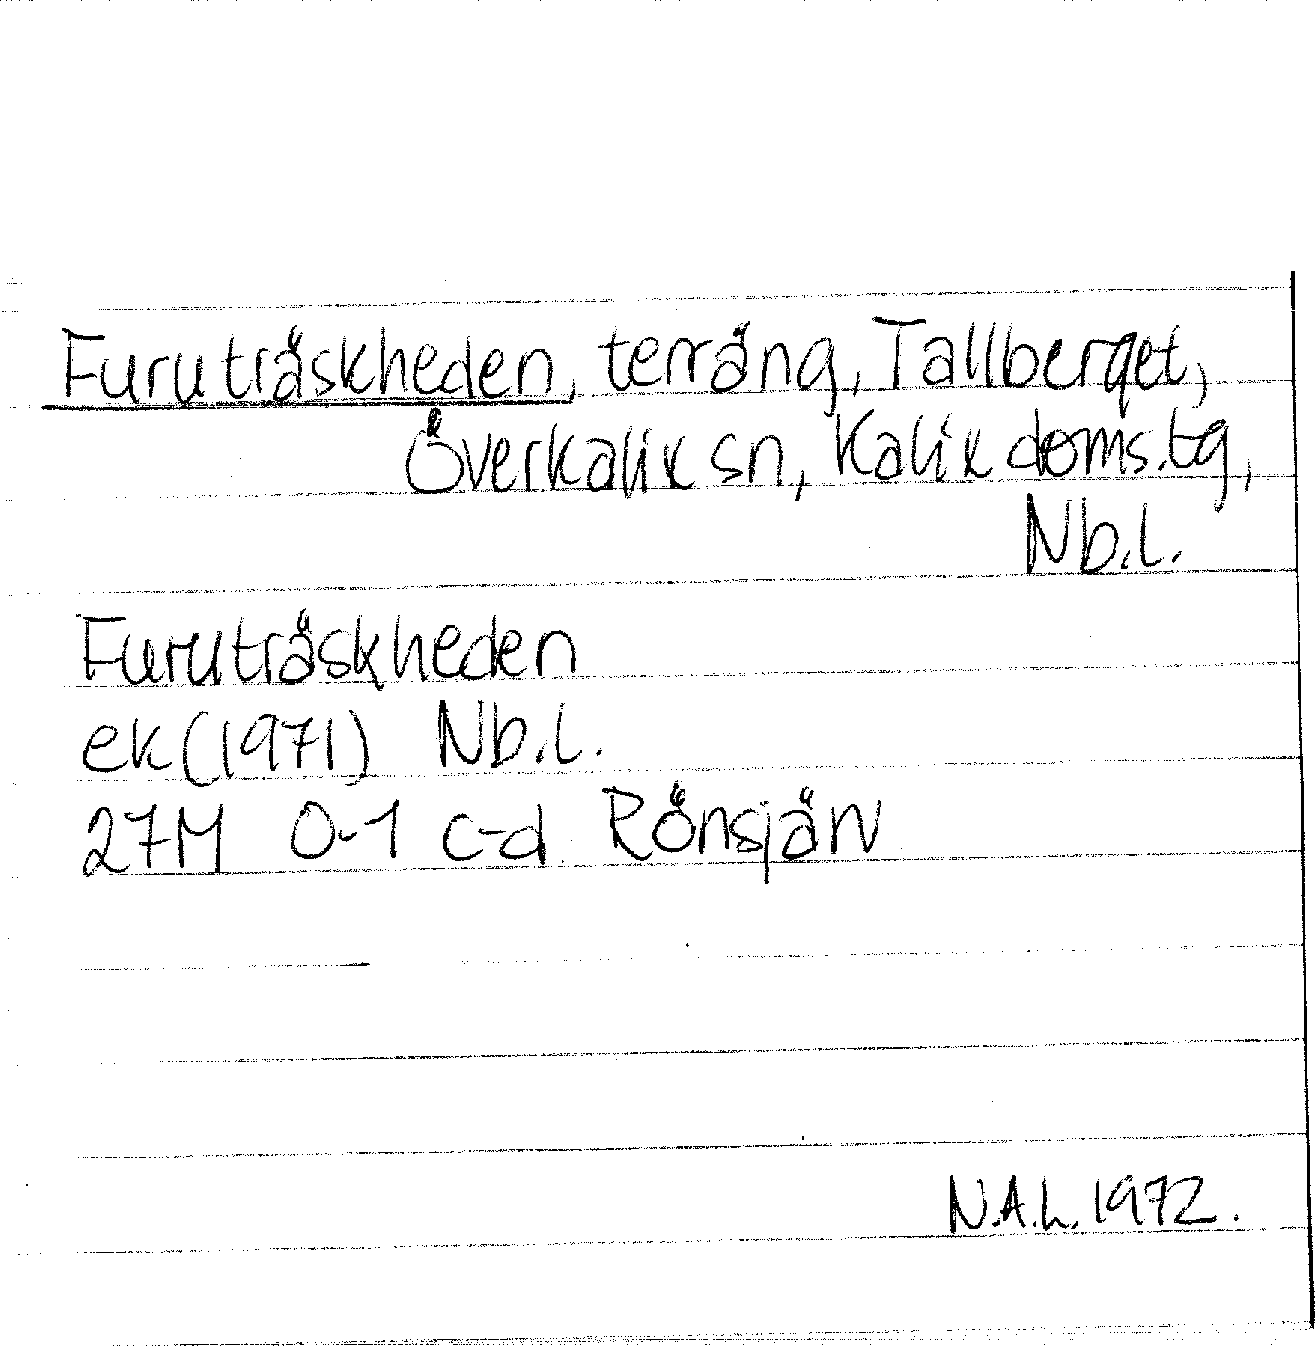 Furuträskheden, terräng, Tallberget,
Överkalix sn, Kalix doms.tg,
Nb.l.
Furuträskheden
ek (1971) Nb.l.
27M 0-1 c-d Rönsjärv
N.A.L. 1972.